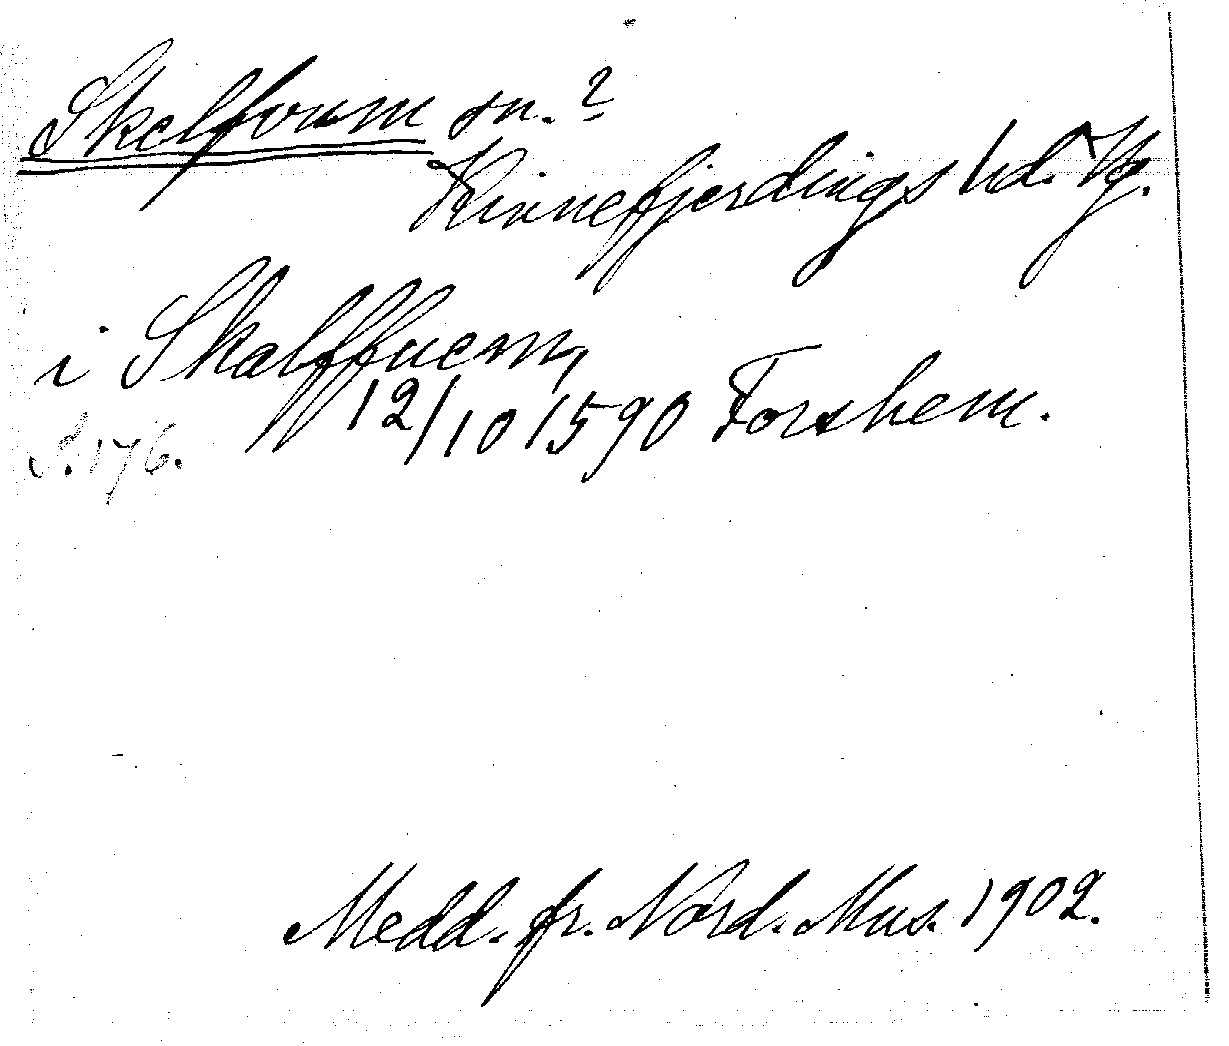 Skelfvum sn.?
Kinnefjerdings hd. Vg.
i Skalffuem,
12/10 1590 Forshem.
S. 176.
Medd. fr. Nord. Mus. 1902.